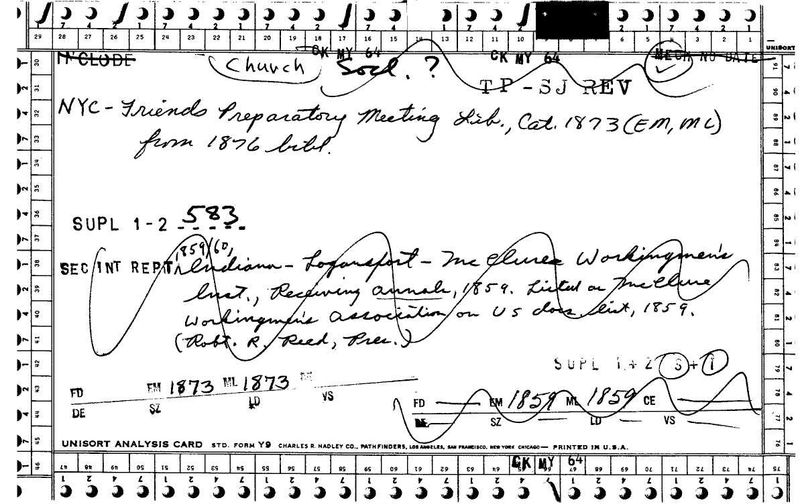 INCLUDE
Church
CK MY 64
Socl. ?
CK MY 64
MECH NO DATE
TP-SJ REV
NYC - Friends Preparatory Meeting Lib., Cat. 1873 (EM, ML)
from 1876 bibl.
SUPL 1-2 583
SEC INT REPT, 1859/60, Indiana - Logansport - McClure Workingmen's
Inst., Receiving Annals, 1859. Listed as McClure
Workingmen's Association on US docs. list, 1859.
(Robt. R. Reed, Pres.)
SUPL 1+2 3+1
FD EM 1873 ML 1873
DE SZ LD VS
FD EM 1859 ML 1859 CE
DE SZ LD VS
UNISORT ANALYSIS CARD STD. FORM Y9 CHARLES R. HADLEY CO., PATHFINDERS, LOS ANGELES, SAN FRANCISCO, NEW YORK CHICAGO — PRINTED IN U.S.A.
CK MY 64